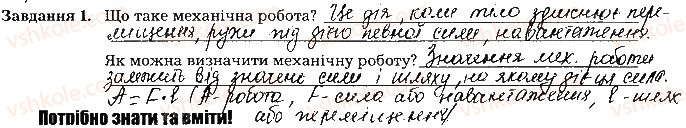 Завдання 1. Що таке механічна робота? Це дія, коли тіло здійснює пере-
міщення, рухи під дією певної сили, навантаження.
Як можна визначити механічну роботу? Значення мех. роботи
залежить від значене сили і шляху, на якому діє ця сила.
A = F · l (A - робота, F - сила або навантаження, l - шлях
Потрібно знати та вміти! або переміщення)